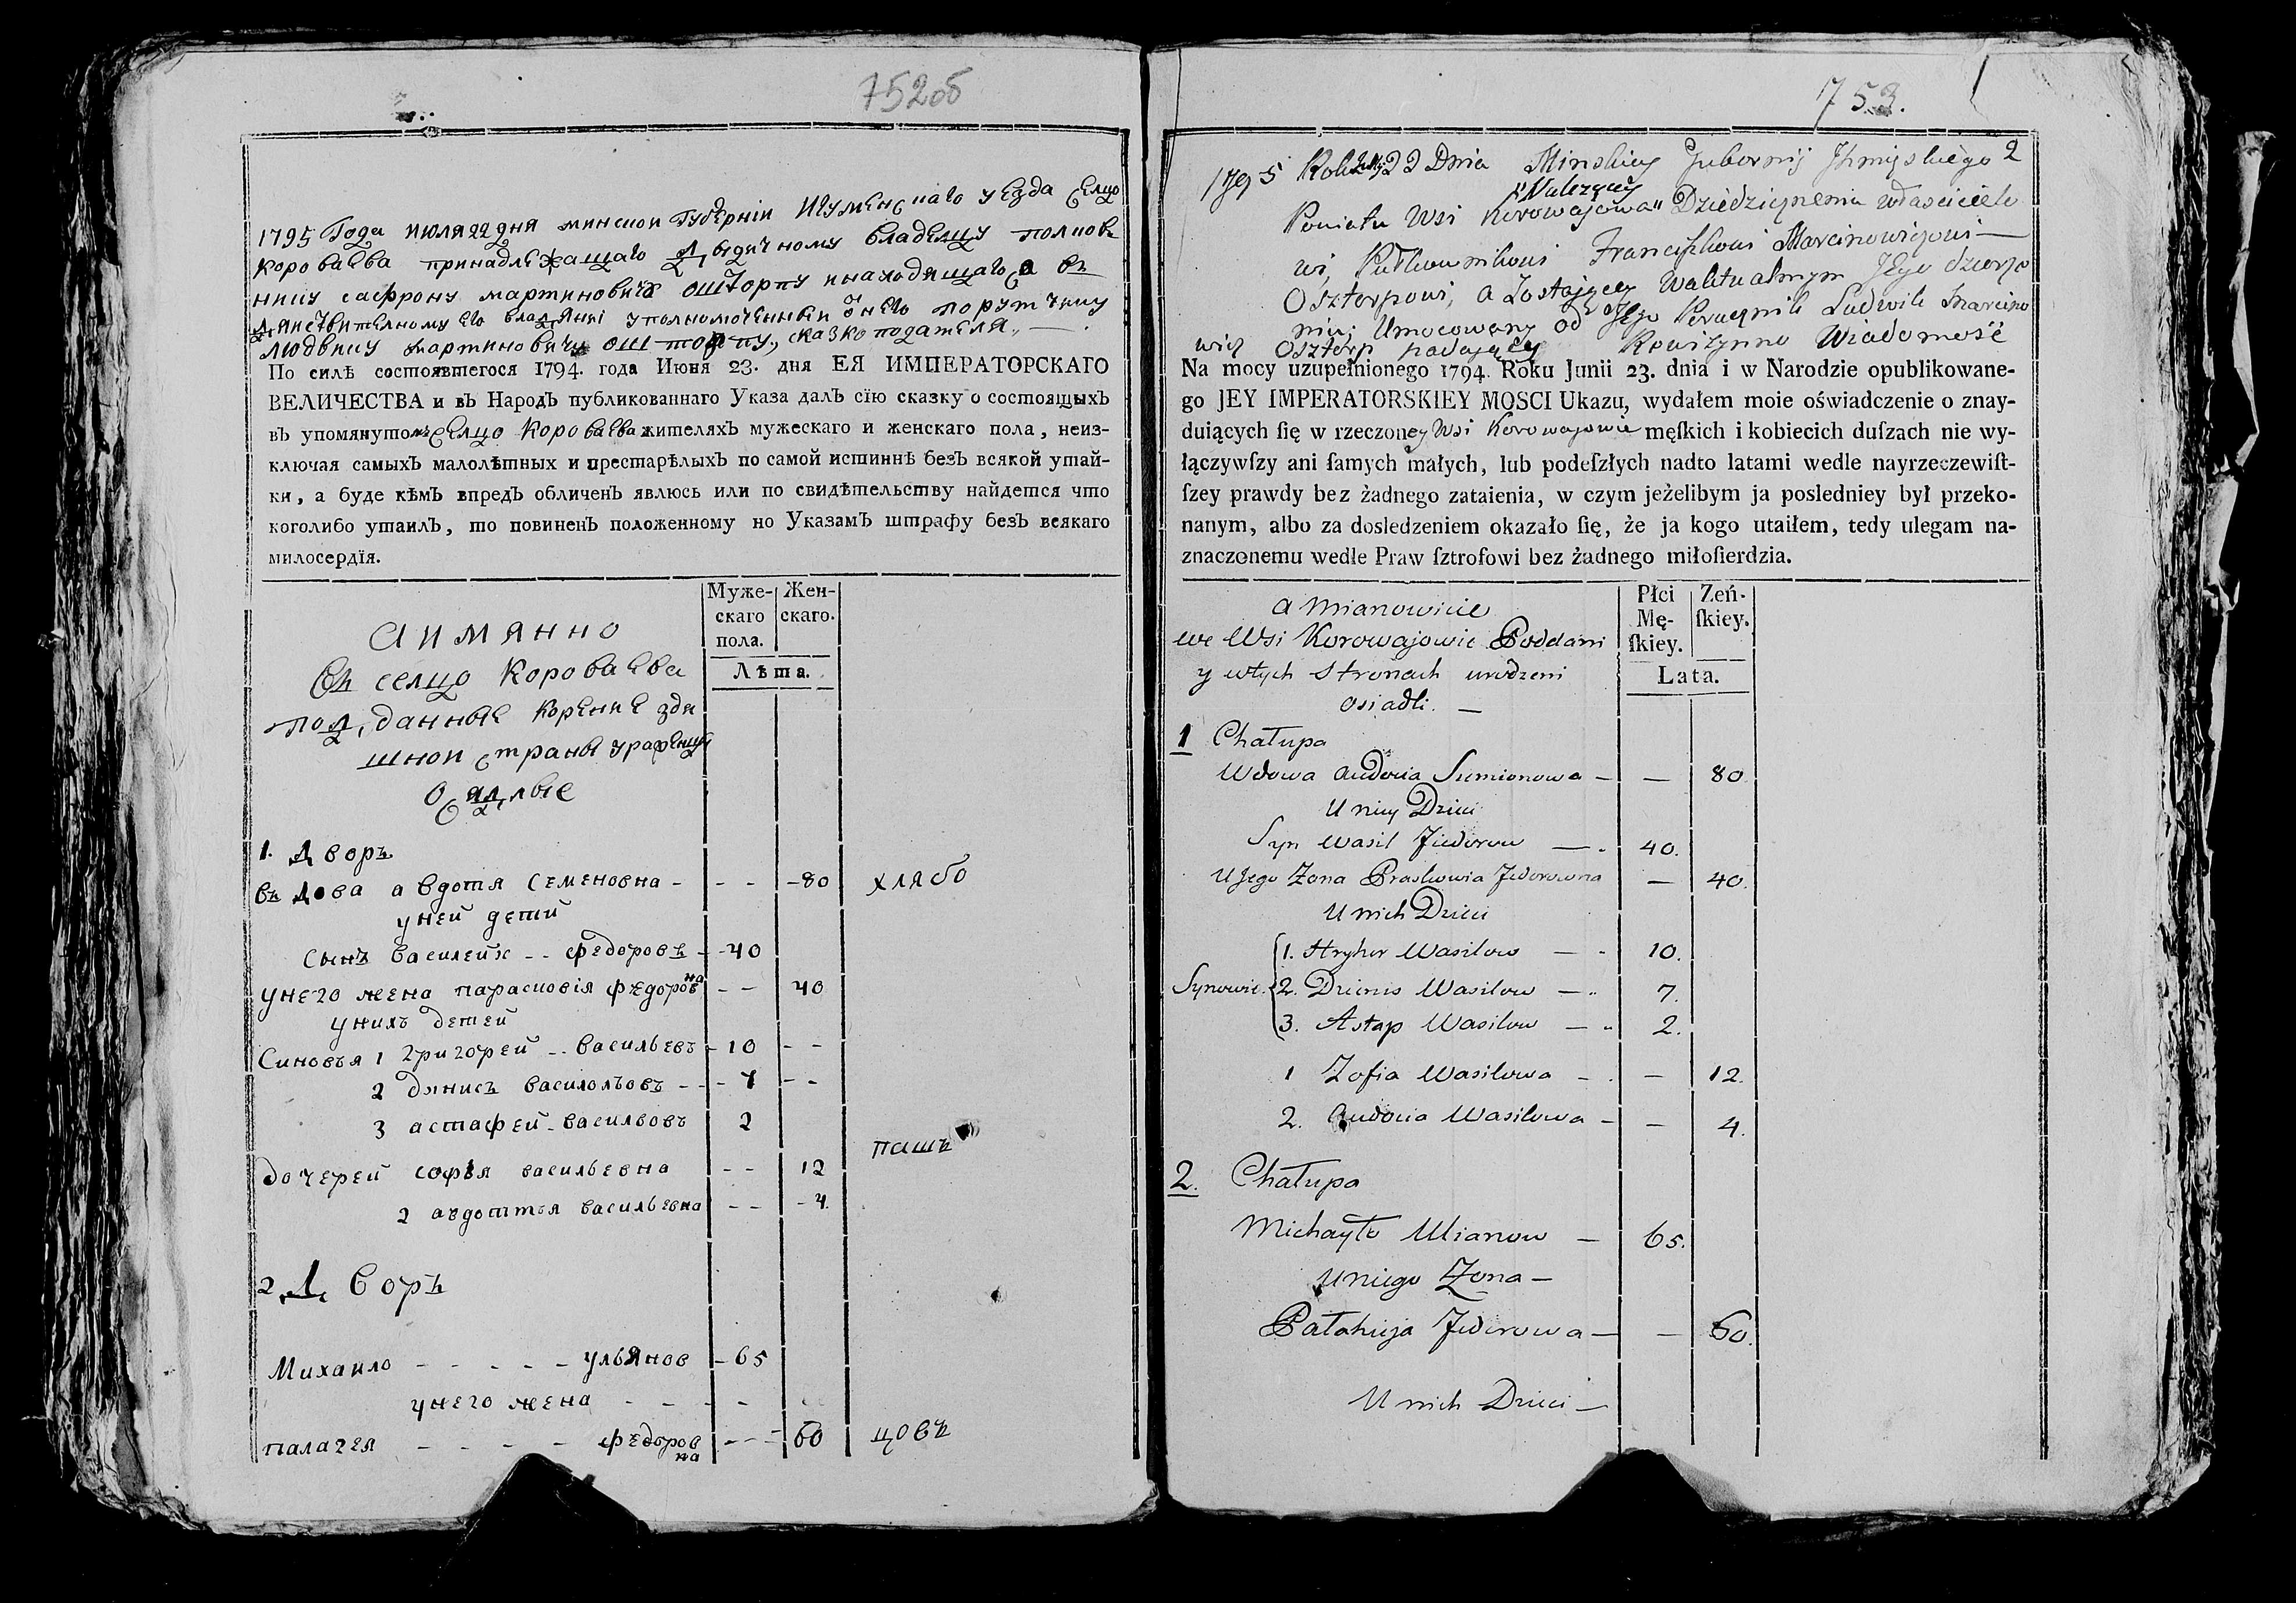 752об
1795 Года июля 22 дня минской Губернии Игуменскаго уезда селцо
Короваева принадлежащаго владелцу полков
нику мартиновича ошторпу инаходящагося въ
его уполномоченной о него поручику
людвику мартиновичу ошторпу, сказкоподателя. —
По силѣ состоявтегося 1794. года Июня 23. дня ЕЯ ИМПЕРАТОРСКАГО
ВЕЛИЧЕСТВА и въ Народъ публикованнаго Указа далъ сїю сказку о состоящыхъ
въ упомянутомъ селцо Короваева жителяхъ мужескаго и женскаго пола, неиз-
ключая самыхъ малолѣтных и престарѣлыхъ по самой истиннѣ безъ всякой утай-
ки, а буде кѣмъ впредъ обличенъ явлюсь или по свидѣтельству найдется что
коголибо утаилъ, то повиненъ положенному но Указамъ штрафу безъ всякаго
милосердїя.
Муже-
скаго
пола.
Жен-
скаго.
Лѣта.
аимянно
Въ селцо Короваева
под,данные корение зде
шной страны
Оседлые
1. Дворъ
въдова авдотя Семеновна - - - - 80 хлябо
уней детй
сынъ василей - - федоровъ - - 40
унего жена парасковія Федоровна - - 40
унихъ детей
Синовъя 1 григорей - - васильевъ - 10 - -
2 дянисъ василольовъ - - - 7 - -
3 астафей - васильвовъ 2
пашъ
дочерей софъя васильевна - - 12
2 авдоттья васильевна - - - 4.
2 Дворъ
Михаило - - - - - ульянов - 65
унего жена - - - - -
палагея - - - - федоровна - - - 60 цовъ
753.
2
1795 Roku 22 Dnia Minskiey Gubernij Jhmięskiego
Powiatu Wsi Korowajowa Należącey Dziedzicznemu właścicielo
wi, Pułkownikowi Franciszkowi Marcinowiczowi —
Oszterpowi, a Zostającey w aktualnym Jego dzierże
niu; Umocowany od Jego Porucznik Ludwik Marcino
wicz Oszterp podający Rewizynno Wiadomość
Na mocy uzupełnionego 1794. Roku Junii 23. dnia i w Narodzie opublikowane-
go JEY IMPERATORSKIEY MOSCI Ukazu, wydałem moie oświadczenie o znay-
duiących ſię w rzeczoney Wsi Korowajowie męſkich i kobiecich duſzach nie wy-
łączywſzy ani ſamych małych, lub podeſzłych nadto latami wedle nayrzeczewiſt-
ſzey prawdy bez żadnego zataienia, w czym jeżelibym ja posledniey był przeko-
nanym, albo za dosledzeniem okazało ſię, że ja kogo utaiłem, tedy ulegam na-
znaczonemu wedle Praw ſztrofowi bez żadnego miłoſierdzia.
Płci
Mę-
ſkiey.
Zeń-
ſkiey.
Lata.
a mianowicie
we Wsi Korowajowie Poddani
y wtych stronach urodzeni
osiadli. —
1 Chałupa
Wdowa Audocia Siemionowa — — 80
U niey Dzieci
Syn Wasil Fiedorow — - 40.
U Jego Zona Praskowia Fedorowna — 40.
U nich Dzieci
1. Hryhor Wasilow — - 10.
Synowie 2. Dzienis Wasilow — - 7.
3. Astap Wasilow — - 2.
1 Zofia Wasilowa - - — 12.
2. Audocia Wasilowa — — 4.
2. Chałupa
Michayło Ulianow — 65.
U niego Zona —
Pałahieja Fedorowa — — 60.
U nich Dzieci —